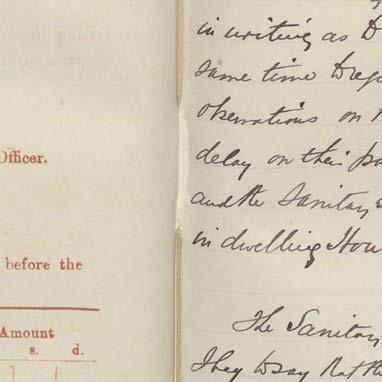 Officer.
before the
Amount
s. d.
in writing as D
same time to reg
observations on
delay on their pa
and the Sanitary
in dwelling Hou
The Sanitary
They to say that the